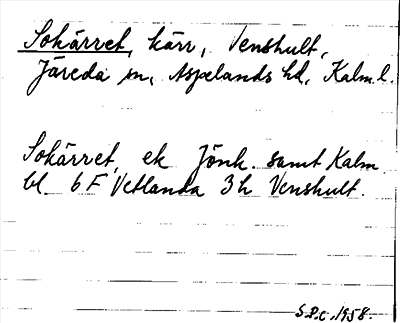 Sokärret, kärr, Venshult,
Järeda sn, Aspelands hd, Kalm. l.
Sokärret, ek Jönk. samt Kalm.
bl. 6 F Vetlanda 3 h Venshult.
S.P.C. 1958.